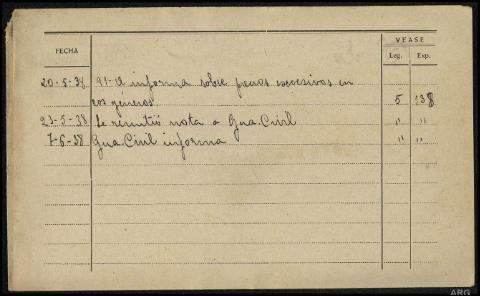 VEASE
FECHA Leg. Exp.
20-5-38 91-A informa sobre precios excesivos en
los géneros 5 138
23-5-38 Se remitió nota a Gua. Civil " "
7-6-38 Gua. Civil informa " "
ARG